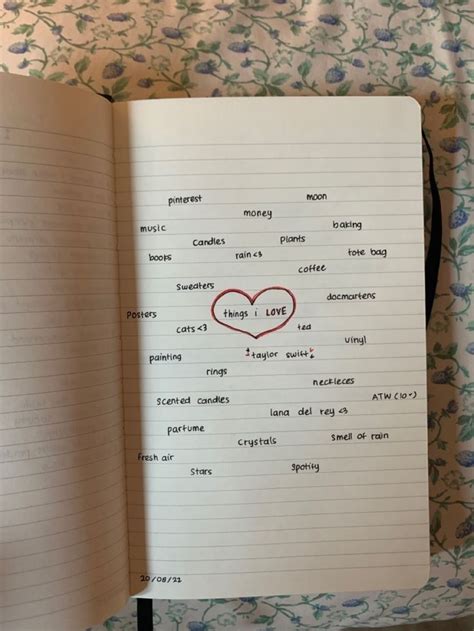 pinterest
moon
money
music
baking
candles
plants
books
rain <3
tote bag
coffee
sweaters
docmartens
things i LOVE
Posters
cats <3
ted
vinyl
painting
taylor swift
rings
neckleces
scented candles
ATW (10
lana del rey <3
parfume
crystals
smell of rain
fresh air
stars
spotify
20/08/22